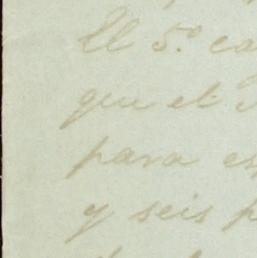 El 5.º ca
que el
para es
y seis p